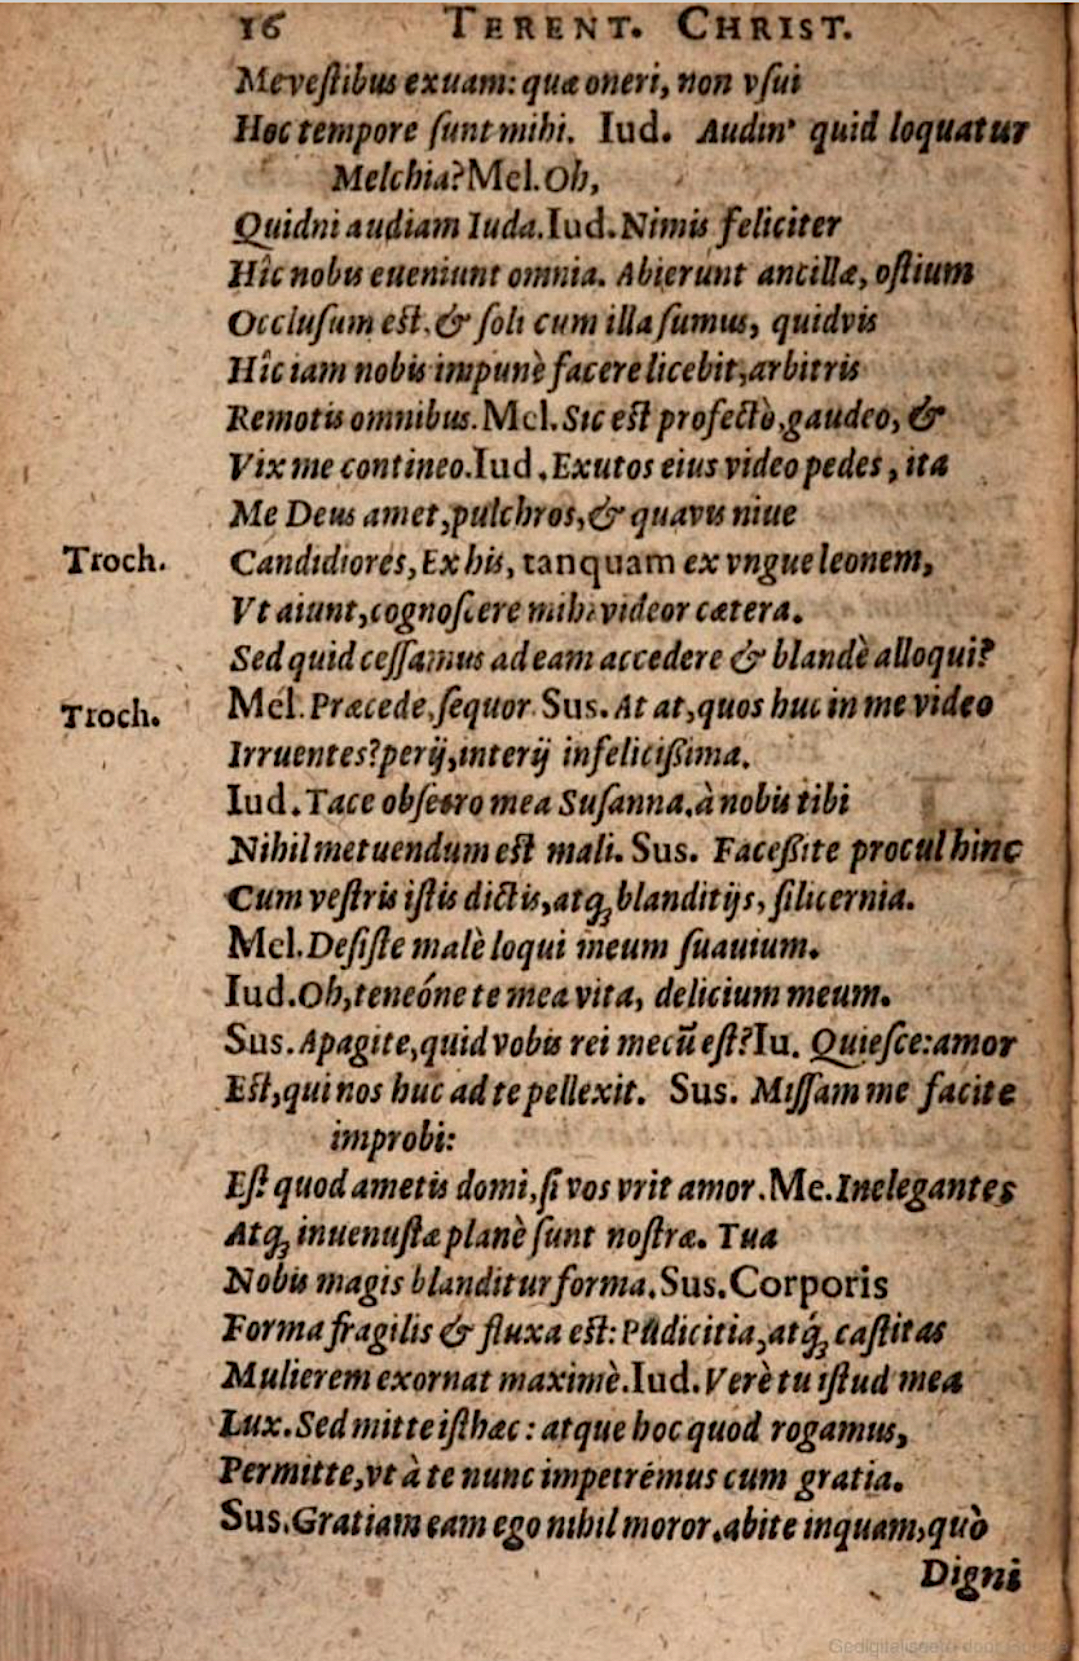 16 TERENT. CHRIST.
Me veſtibus exuam: quæ oneri, non vſui
Hoc tempore ſunt mihi. Iud. Audin' quid loquatur
Melchia? Mel. Oh,
Quidni audiam Iuda. Iud. Nimis feliciter
Hîc nobis eueniunt omnia. Abierunt ancillæ, oſtium
Occluſum eſt. & ſoli cum illa ſumus, quidvis
Hîc iam nobis impunè facere licebit, arbitris
Remotis omnibus. Mel. Sic eſt profectò, gaudeo, &
Vix me contineo. Iud. Exutos eius video pedes, ita
Me Deus amet, pulchros, & quavis niue
Troch. Candidiores, Ex his, tanquam ex vngue leonem,
Vt aiunt, cognoſcere mihi videor cætera.
Sed quid ceſſamus ad eam accedere & blandè alloqui?
Troch. Mel. Præcede, ſequor. Sus. At at, quos huc in me video
Irruentes? perij, interij infeliciſsima.
Iud. Tace obſecro mea Suſanna. à nobis tibi
Nihil metuendum eſt mali. Sus. Faceſsite procul hinc
Cum veſtris iſtis dictis, atq; blanditijs, ſilicernia.
Mel. Deſiſte malè loqui meum ſuauium.
Iud. Oh, teneóne te mea vita, delicium meum.
Sus. Apagite, quid vobis rei mecū eſt? Iu. Quieſce: amor
Eſt, qui nos huc ad te pellexit. Sus. Miſſam me facite
improbi:
Eſt quod ametis domi, ſi vos vrit amor. Me. Inelegantes
Atq; inuenuſtæ planè ſunt noſtræ. Tua
Nobis magis blanditur forma. Sus. Corporis
Forma fragilis & fluxa eſt: Pudicitia, atq́; caſtitas
Mulierem exornat maximè. Iud. Verè tu iſtud mea
Lux. Sed mitte iſthæc: atque hoc quod rogamus,
Permitte, vt à te nunc impetrémus cum gratia.
Sus. Gratiam eam ego nihil moror. abite inquam, quò
Digni